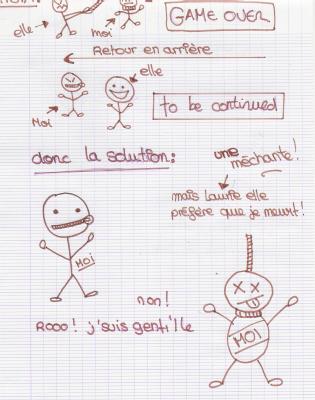 GAME OVER
elle
moi
Retour en arrière
elle
Moi
to be continued
donc la solution:
une méchante!
mais laurie elle
préfère que je meurt!
MOI
non!
Rooo! j'suis genti'lle
MOI